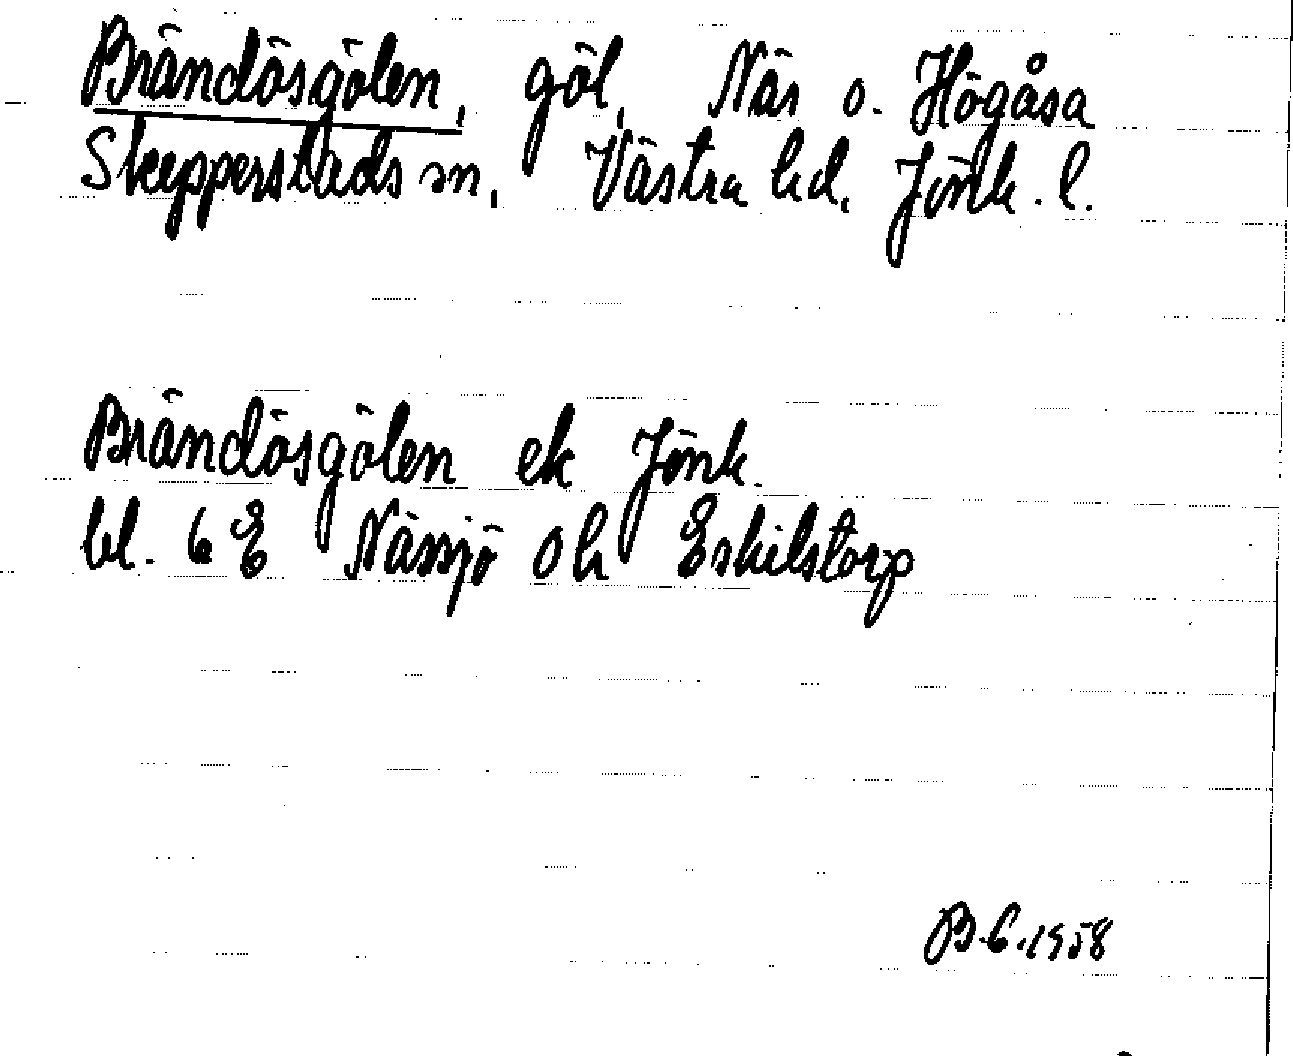 Brändåsgölen, göl, Näs o. Högåsa
Skepperstads sn, Västra hd, Jönk. l.
Brändåsgölen ek Jönk.
bl. 6 E Nässjö och Eskilstorp
B.C. 1958